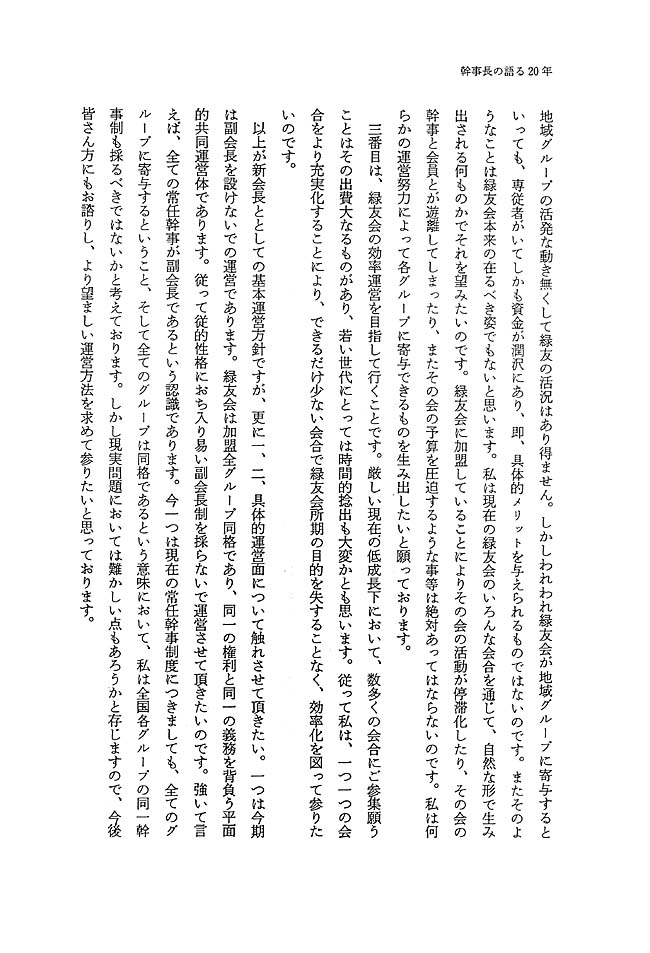 幹事長の語る20年
地域グループの活発な動き無くして緑友の活況はあり得ません。しかしわれわれ緑友会が地域グループに寄与すると
いっても、専従者がいてしかも資金が潤沢にあり、即、具体的メリットを与えられるものではないのです。またそのよ
うなことは緑友会本来の在るべき姿でもないと思います。私は現在の緑友会のいろんな会合を通じて、自然な形で生み
出される何ものかでそれを望みたいのです。緑友会に加盟していることによりその会の活動が停滞化したり、その会の
幹事と会員とが遊離してしまったり、またその会の予算を圧迫するような事等は絶対あってはならないのです。私は何
らかの運営努力によって各グループに寄与できるものを生み出したいと願っております。
三番目は、緑友会の効率運営を目指して行くことです。厳しい現在の低成長下において、数多くの会合にご参集願う
ことはその出費大なるものがあり、若い世代にとっては時間的捻出も大変かとも思います。従って私は、一つ一つの会
合をより充実化することにより、できるだけ少ない会合で緑友会所期の目的を失することなく、効率化を図って参りた
いのです。
以上が新会長ととしての基本運営方針ですが、更に一、二、具体的運営面について触れさせて頂きたい。一つは今期
は副会長を設けないでの運営であります。緑友会は加盟全グループ同格であり、同一の権利と同一の義務を背負う平面
的共同運営体であります。従って従的性格におち入り易い副会長制を採らないで運営させて頂きたいのです。強いて言
えば、全ての常任幹事が副会長であるという認識であります。今一つは現在の常任幹事制度につきましても、全てのグ
ループに寄与するということ、そして全てのグループは同格であるという意味において、私は全国各グループの同一幹
事制も採るべきではないかと考えております。しかし現実問題においては難かしい点もあろうかと存じますので、今後
皆さん方にもお諮りし、より望ましい運営方法を求めて参りたいと思っております。